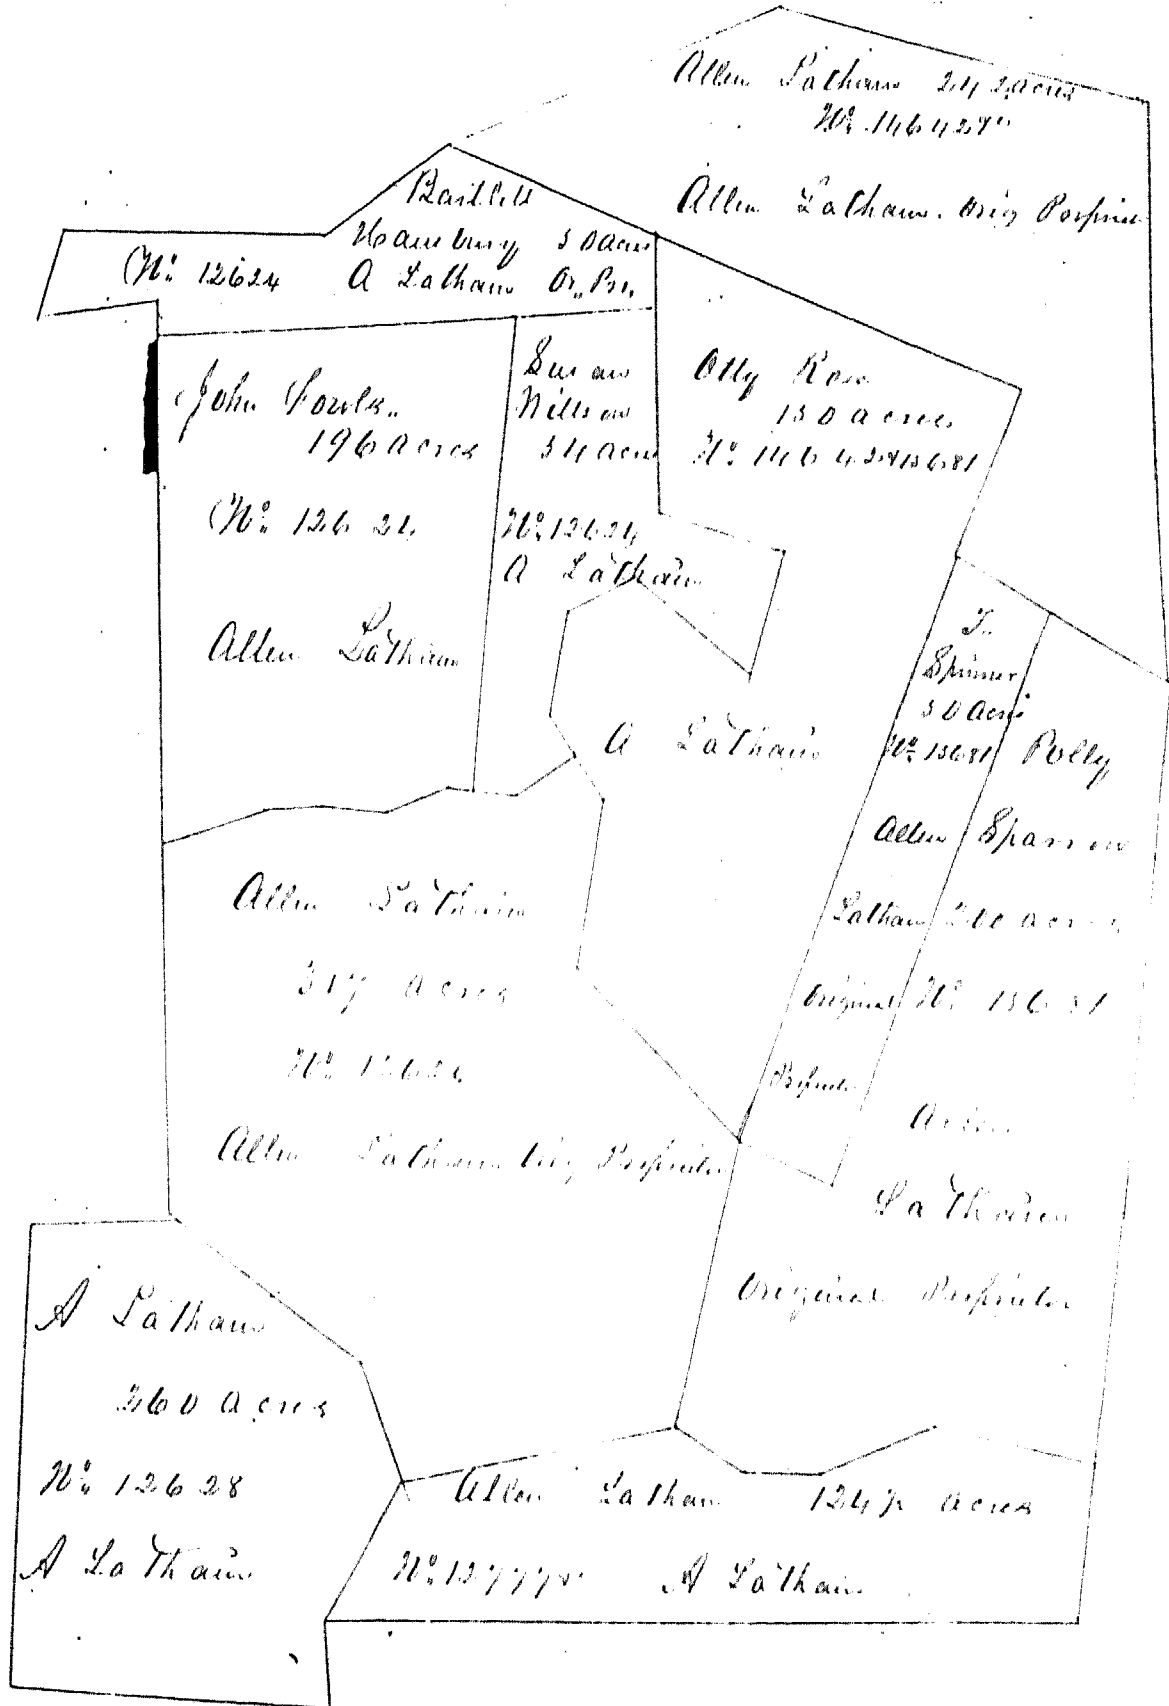 Allen Latham 242 Acres
No. 14642 &
Allen Latham. Orig Proprietor
Bartlett
Hamburg 50 acres
No. 12624 A Latham Or. Pr.
John Fowlk..
196 Acres
No. 12624
Allen Latham
Susan
Willson
54 acres
No. 12624
A Latham
Olly Ross
150 acres
No. 14642 & 13681
A Latham
T..
Spinner
50 Acres
No. 13681
Allen
Latham
Original
Proprietor
Polly
Sparrow
200 acres
No. 13681
Allen
Latham
Original Proprietor
Allen Latham
317 acres
No. 12626
Allen Latham Orig Proprietor
A Latham
260 Acres
No. 12628
A Latham
Allen Latham 124 ½ acres
No. 12777
A Latham